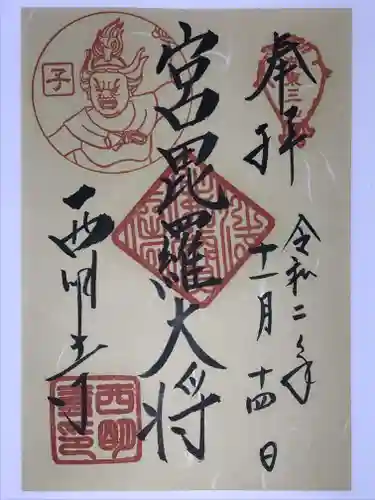 奉拝
令和二年
十一月十四日
宮毘羅大将
西明寺
子